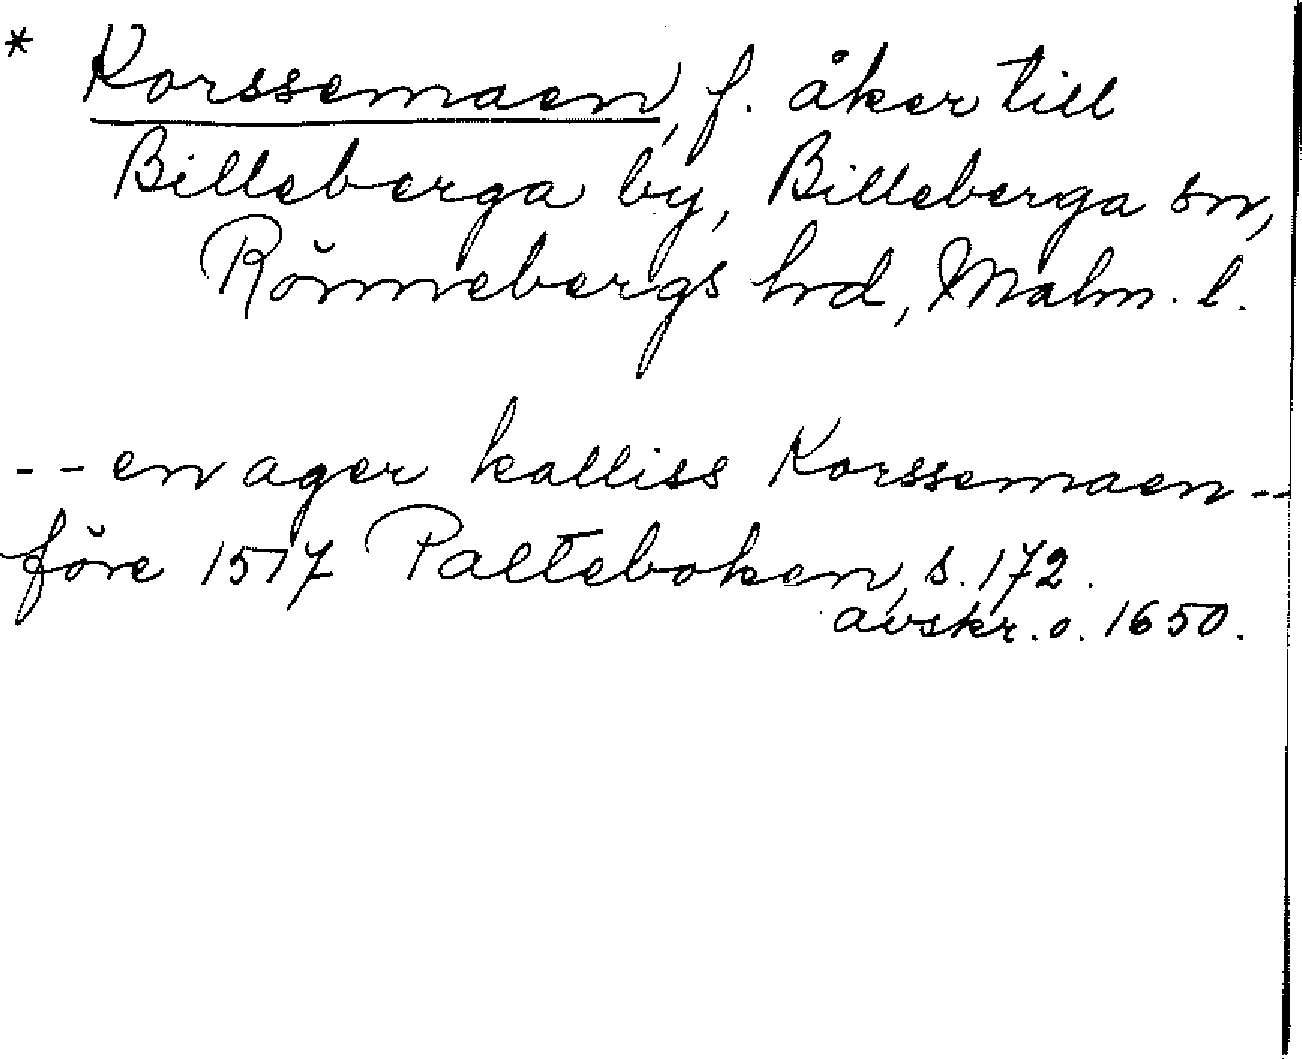 * Korssemaen, f. åker till
Billeberga by, Billeberga sn,
Rönnebergs hd, Malm. l.
- - en ager kalliss Korssemaen - -
före 1517 Palteboken, s. 172.
avskr. o. 1650.